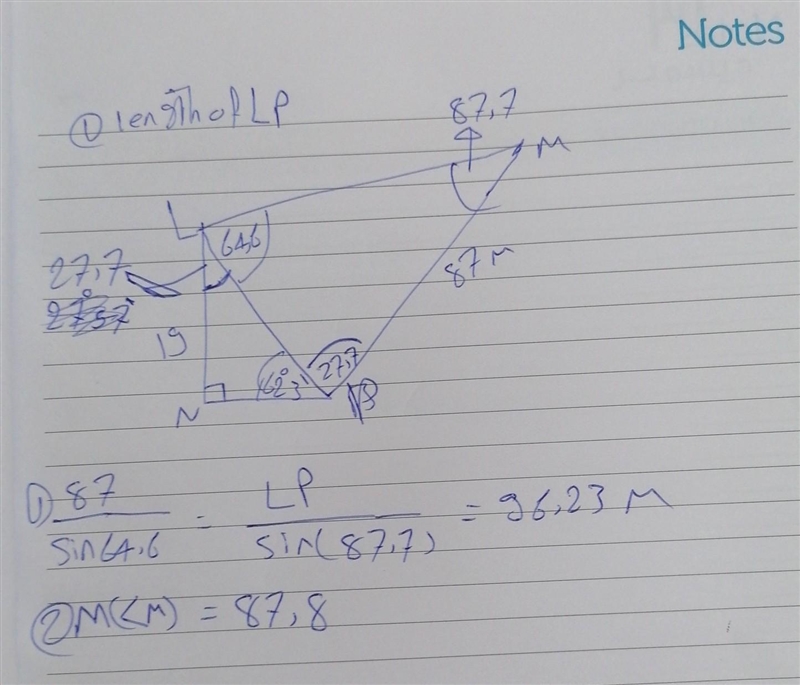 Notes
① length of LP
87,7
M
L
64,6
27,7
87 M
19
62,3
27,7
N
P
① 87 / sin 64,6 = LP / sin(87,7) = 96,23 M
② M(<M) = 87,8